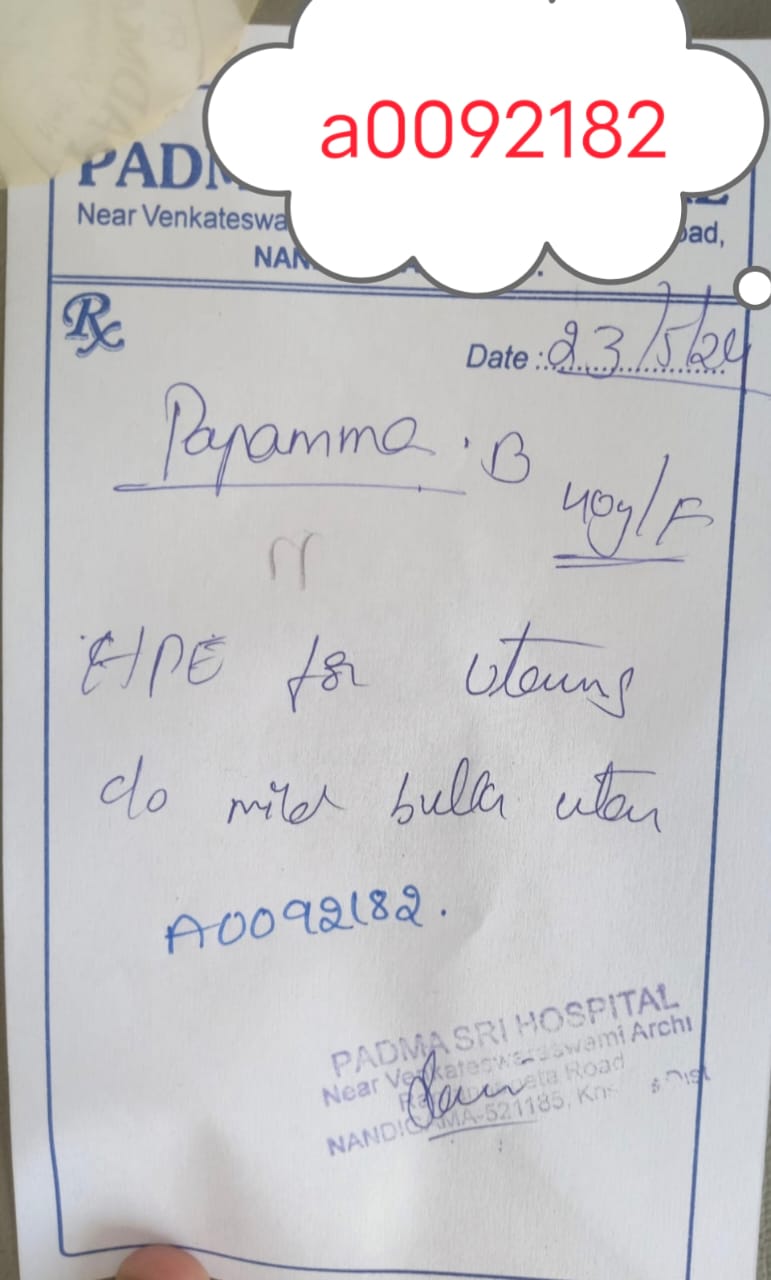 a0092182
PADM
Near Venkateswa
oad,
NAN
Rx
Date : 23/5/24
Papamma . B
40y/F
HPE for uterus
c/o mild bulky uteru
A0092182.
PADMA SRI HOSPITAL
Near Venkateswaraswami Archi
Road
NANDIGAMA-521185, Dist